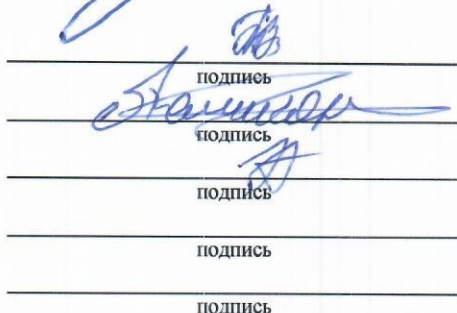 подпись
подпись
подпись
подпись
подпись